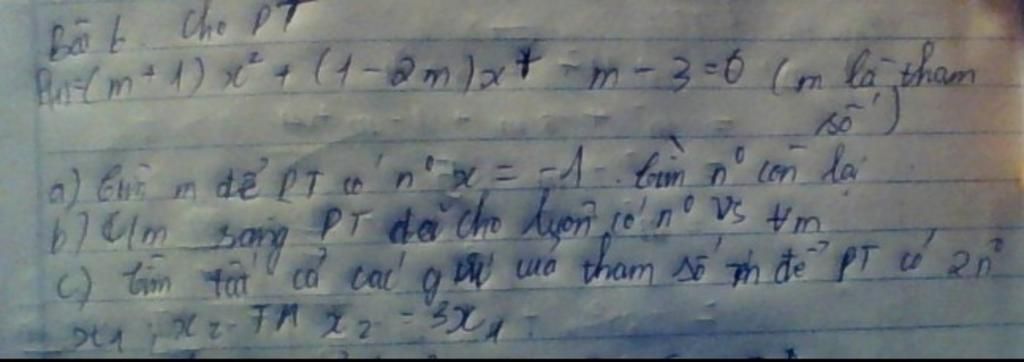 Bài 6. Cho PT
(m+1)x² + (1-2m)x + -m-3=0 (m là tham
số)
a) tìm m để PT có n⁰ x = -1. tìm n⁰ còn lại
b) C/m rằng PT đã cho luôn có n⁰ vs ∀m
c) tìm tất cả các giá trị của tham số m để PT có 2n⁰
x₁; x₂ TM x₂ = 3x₁